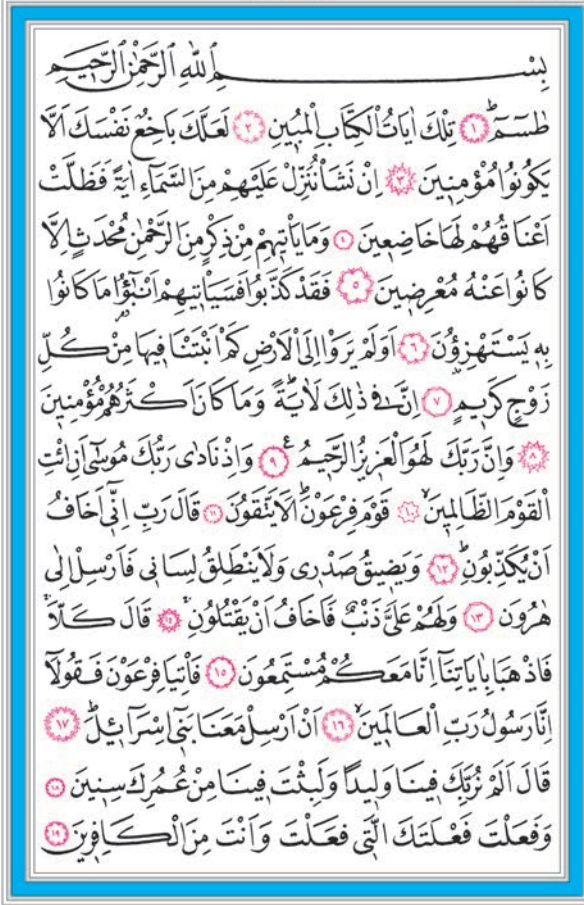 بِسْمِ اللّٰهِ الرَّحْمٰنِ الرَّحِيمِ
طٰسٓمٓ ﴿١﴾ تِلْكَ اٰيَاتُ الْكِتَابِ الْمُبِينِ ﴿٢﴾ لَعَلَّكَ بَاخِعٌ نَفْسَكَ اَلَّا
يَكُونُوا مُؤْمِنِينَ ﴿٣﴾ اِنْ نَشَأْ نُنَزِّلْ عَلَيْهِمْ مِنَ السَّمَاءِ اٰيَةً فَظَلَّتْ
اَعْنَاقُهُمْ لَهَا خَاضِعِينَ ﴿٤﴾ وَمَا يَأْتِيهِمْ مِنْ ذِكْرٍ مِنَ الرَّحْمٰنِ مُحْدَثٍ اِلَّا
كَانُوا عَنْهُ مُعْرِضِينَ ﴿٥﴾ فَقَدْ كَذَّبُوا فَسَيَأْتِيهِمْ اَنْبٰٓؤُ۬ا مَا كَانُوا
بِهِ يَسْتَهْزِؤُنَ ﴿٦﴾ اَوَلَمْ يَرَوْا اِلَى الْاَرْضِ كَمْ اَنْبَتْنَا فِيهَا مِنْ كُلِّ
زَوْجٍ كَرِيمٍ ﴿٧﴾ اِنَّ فِى ذٰلِكَ لَاٰيَةً وَمَا كَانَ اَكْثَرُهُمْ مُؤْمِنِينَ
﴿٨﴾ وَاِنَّ رَبَّكَ لَهُوَ الْعَزِيزُ الرَّحِيمُ ﴿٩﴾ وَاِذْ نَادٰى رَبُّكَ مُوسٰٓى اَنِ ائْتِ
الْقَوْمَ الظَّالِمِينَ ﴿١٠﴾ قَوْمَ فِرْعَوْنَ اَلَا يَتَّقُونَ ﴿١١﴾ قَالَ رَبِّ اِنِّٓى اَخَافُ
اَنْ يُكَذِّبُونِ ﴿١٢﴾ وَيَضِيقُ صَدْرِى وَلَا يَنْطَلِقُ لِسَانِى فَاَرْسِلْ اِلٰى
هٰرُونَ ﴿١٣﴾ وَلَهُمْ عَلَىَّ ذَنْبٌ فَاَخَافُ اَنْ يَقْتُلُونِ ﴿١٤﴾ قَالَ كَلَّا
فَاذْهَبَا بِاٰيَاتِنَٓا اِنَّا مَعَكُمْ مُسْتَمِعُونَ ﴿١٥﴾ فَأْتِيَا فِرْعَوْنَ فَقُولَٓا
اِنَّا رَسُولُ رَبِّ الْعَالَمِينَ ﴿١٦﴾ اَنْ اَرْسِلْ مَعَنَا بَنِٓى اِسْرَٓائِيلَ ﴿١٧﴾
قَالَ اَلَمْ نُرَبِّكَ فِينَا وَلِيدًا وَلَبِثْتَ فِينَا مِنْ عُمُرِكَ سِنِينَ ﴿١٨﴾
وَفَعَلْتَ فَعْلَتَكَ الَّتِى فَعَلْتَ وَاَنْتَ مِنَ الْكَافِرِينَ ﴿١٩﴾